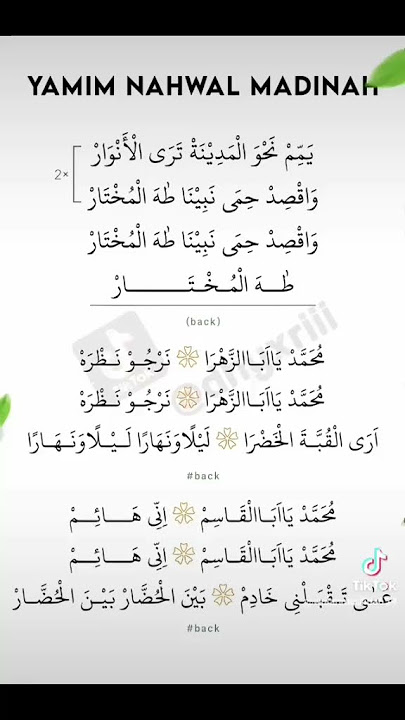 YAMIM NAHWAL MADINAH
2× يَمِّمْ نَحْوَ الْمَدِيْنَةْ تَرَى الْأَنْوَارْ
وَاقْصِدْ حِمَى نَبِيْنَا طٰهَ الْمُخْتَارْ
وَاقْصِدْ حِمَى نَبِيْنَا طٰهَ الْمُخْتَارْ
طٰـهَ الْمُـخْـتَـــــــارْ
(back)
مُحَمَّدْ يَااَبَـاالزَّهْرَا نَرْجُـوْ نَـظْرَهْ
مُحَمَّدْ يَااَبَـاالزَّهْرَا نَرْجُـوْ نَـظْرَهْ
اَرَى الْقُبَّـةَ الْخَضْرَا لَيْلًاوَنَهَارًا لَـيْـلًاوَنَـهَـارًا
#back
مُحَمَّدْ يَااَبَـاالْقَـاسِمْ اِنِّى هَـــائِــمْ
مُحَمَّدْ يَااَبَـاالْقَـاسِمْ اِنِّى هَـــائِــمْ
عَسٰى تَـقْبَـلْـنِى خَادِمْ بَيْنَ الْحُضَّارْ بَيْـنَ الْحُضَّـارْ
#back
TikTok